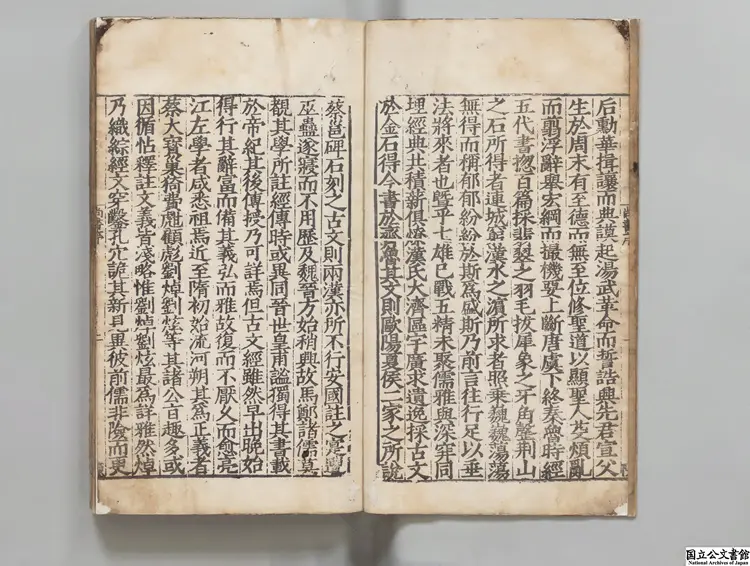 后勳華揖讓而典謨起湯武革命而誓誥興先君宣父
生於周末有至德而無至位修聖道以顯聖人芟煩亂
而翦浮辭舉宏綱而撮機要上斷唐虞下終秦魯時經
五代書揔百篇採翡翠之羽毛拔犀象之牙角罄荊山
之石所得者連城窮漢水之濱所求者照乘巍巍蕩蕩
無得而稱郁郁紛紛於斯爲盛斯乃前言往行足以垂
法將來者也曁乎七雄已戰五精未聚儒雅與深穽同
埋經典共積薪俱燎漢氏大濟區宇廣求遺逸採古文
於金石得今書於齊魯其文則歐陽夏侯二家之所說
蔡邕碑石刻之古文則兩漢亦所不行安國註之寔遭
巫蠱遂寢而不用歷及魏晉方始稍興故馬鄭諸儒莫
覩其學所註經傳時或異同晉世皇甫謐獨得其書載
於帝紀其後傳授乃可詳焉但古文經雖然早出晚始
得行其辭富而備其義弘而雅故復而不厭久而愈亮
江左學者咸悉祖焉近至隋初始流河朔其爲正義者
蔡大寶巢猗費甝顧彪劉焯劉炫等其諸公旨趣多或
因循帖釋註文義皆淺略惟劉焯劉炫最爲詳雅然焯
乃織綜經文穿鑿孔穴詭其新見異彼前儒非險而更
尚書序
国立公文書館
National Archives of Japan